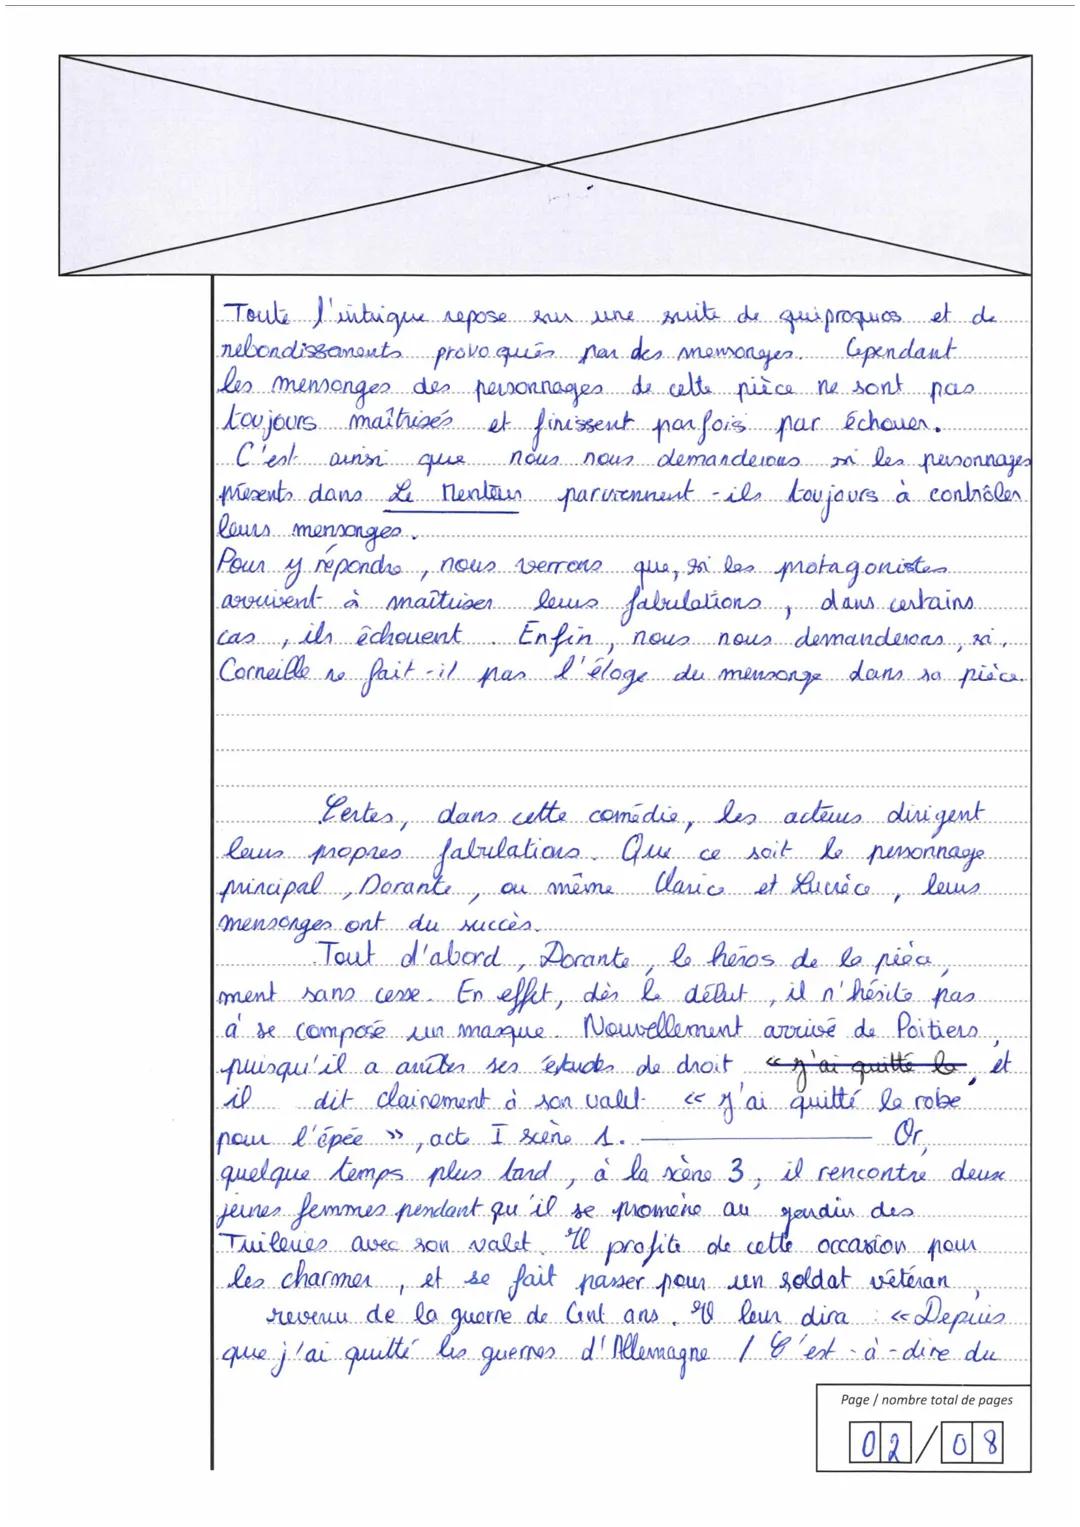 Toute l'intrigue repose sur une suite de quiproquos et de
rebondissements provoqués par des mensonges. Cependant
les mensonges des personnages de cette pièce ne sont pas
toujours maîtrisés et finissent parfois par échouer.
C'est ainsi que nous nous demanderons si les personnages
présents dans Le Menteur parviennent-ils toujours à contrôler
leurs mensonges.
Pour y répondre, nous verrons que, si les protagonistes
arrivent à maîtriser leurs fabulations, dans certains
cas, ils échouent. Enfin, nous nous demanderons, si,
Corneille ne fait-il pas l'éloge du mensonge dans sa pièce.
Certes, dans cette comédie, les acteurs dirigent
leurs propres fabulations. Que ce soit le personnage
principal, Dorante, ou même Clarice et Lucrèce, leurs
mensonges ont du succès.
Tout d'abord, Dorante, le héros de la pièce,
ment sans cesse. En effet, dès le début, il n'hésite pas
à se composé un masque. Nouvellement arrivé de Poitiers,
puisqu'il a arrêter ses études de droit « j'ai quitté la, et
il dit clairement à son valet « j'ai quitté la robe
pour l'épée », acte I scène 1. Or,
quelque temps plus tard, à la scène 3, il rencontre deux
jeunes femmes pendant qu'il se promène au jardin des
Tuileries avec son valet. Il profite de cette occasion pour
les charmer, et se fait passer pour un soldat vétéran,
revenu de la guerre de Cent ans. Il leur dira : « Depuis
que j'ai quitté les guerres d'Allemagne / C'est-à-dire du
Page / nombre total de pages
02/08